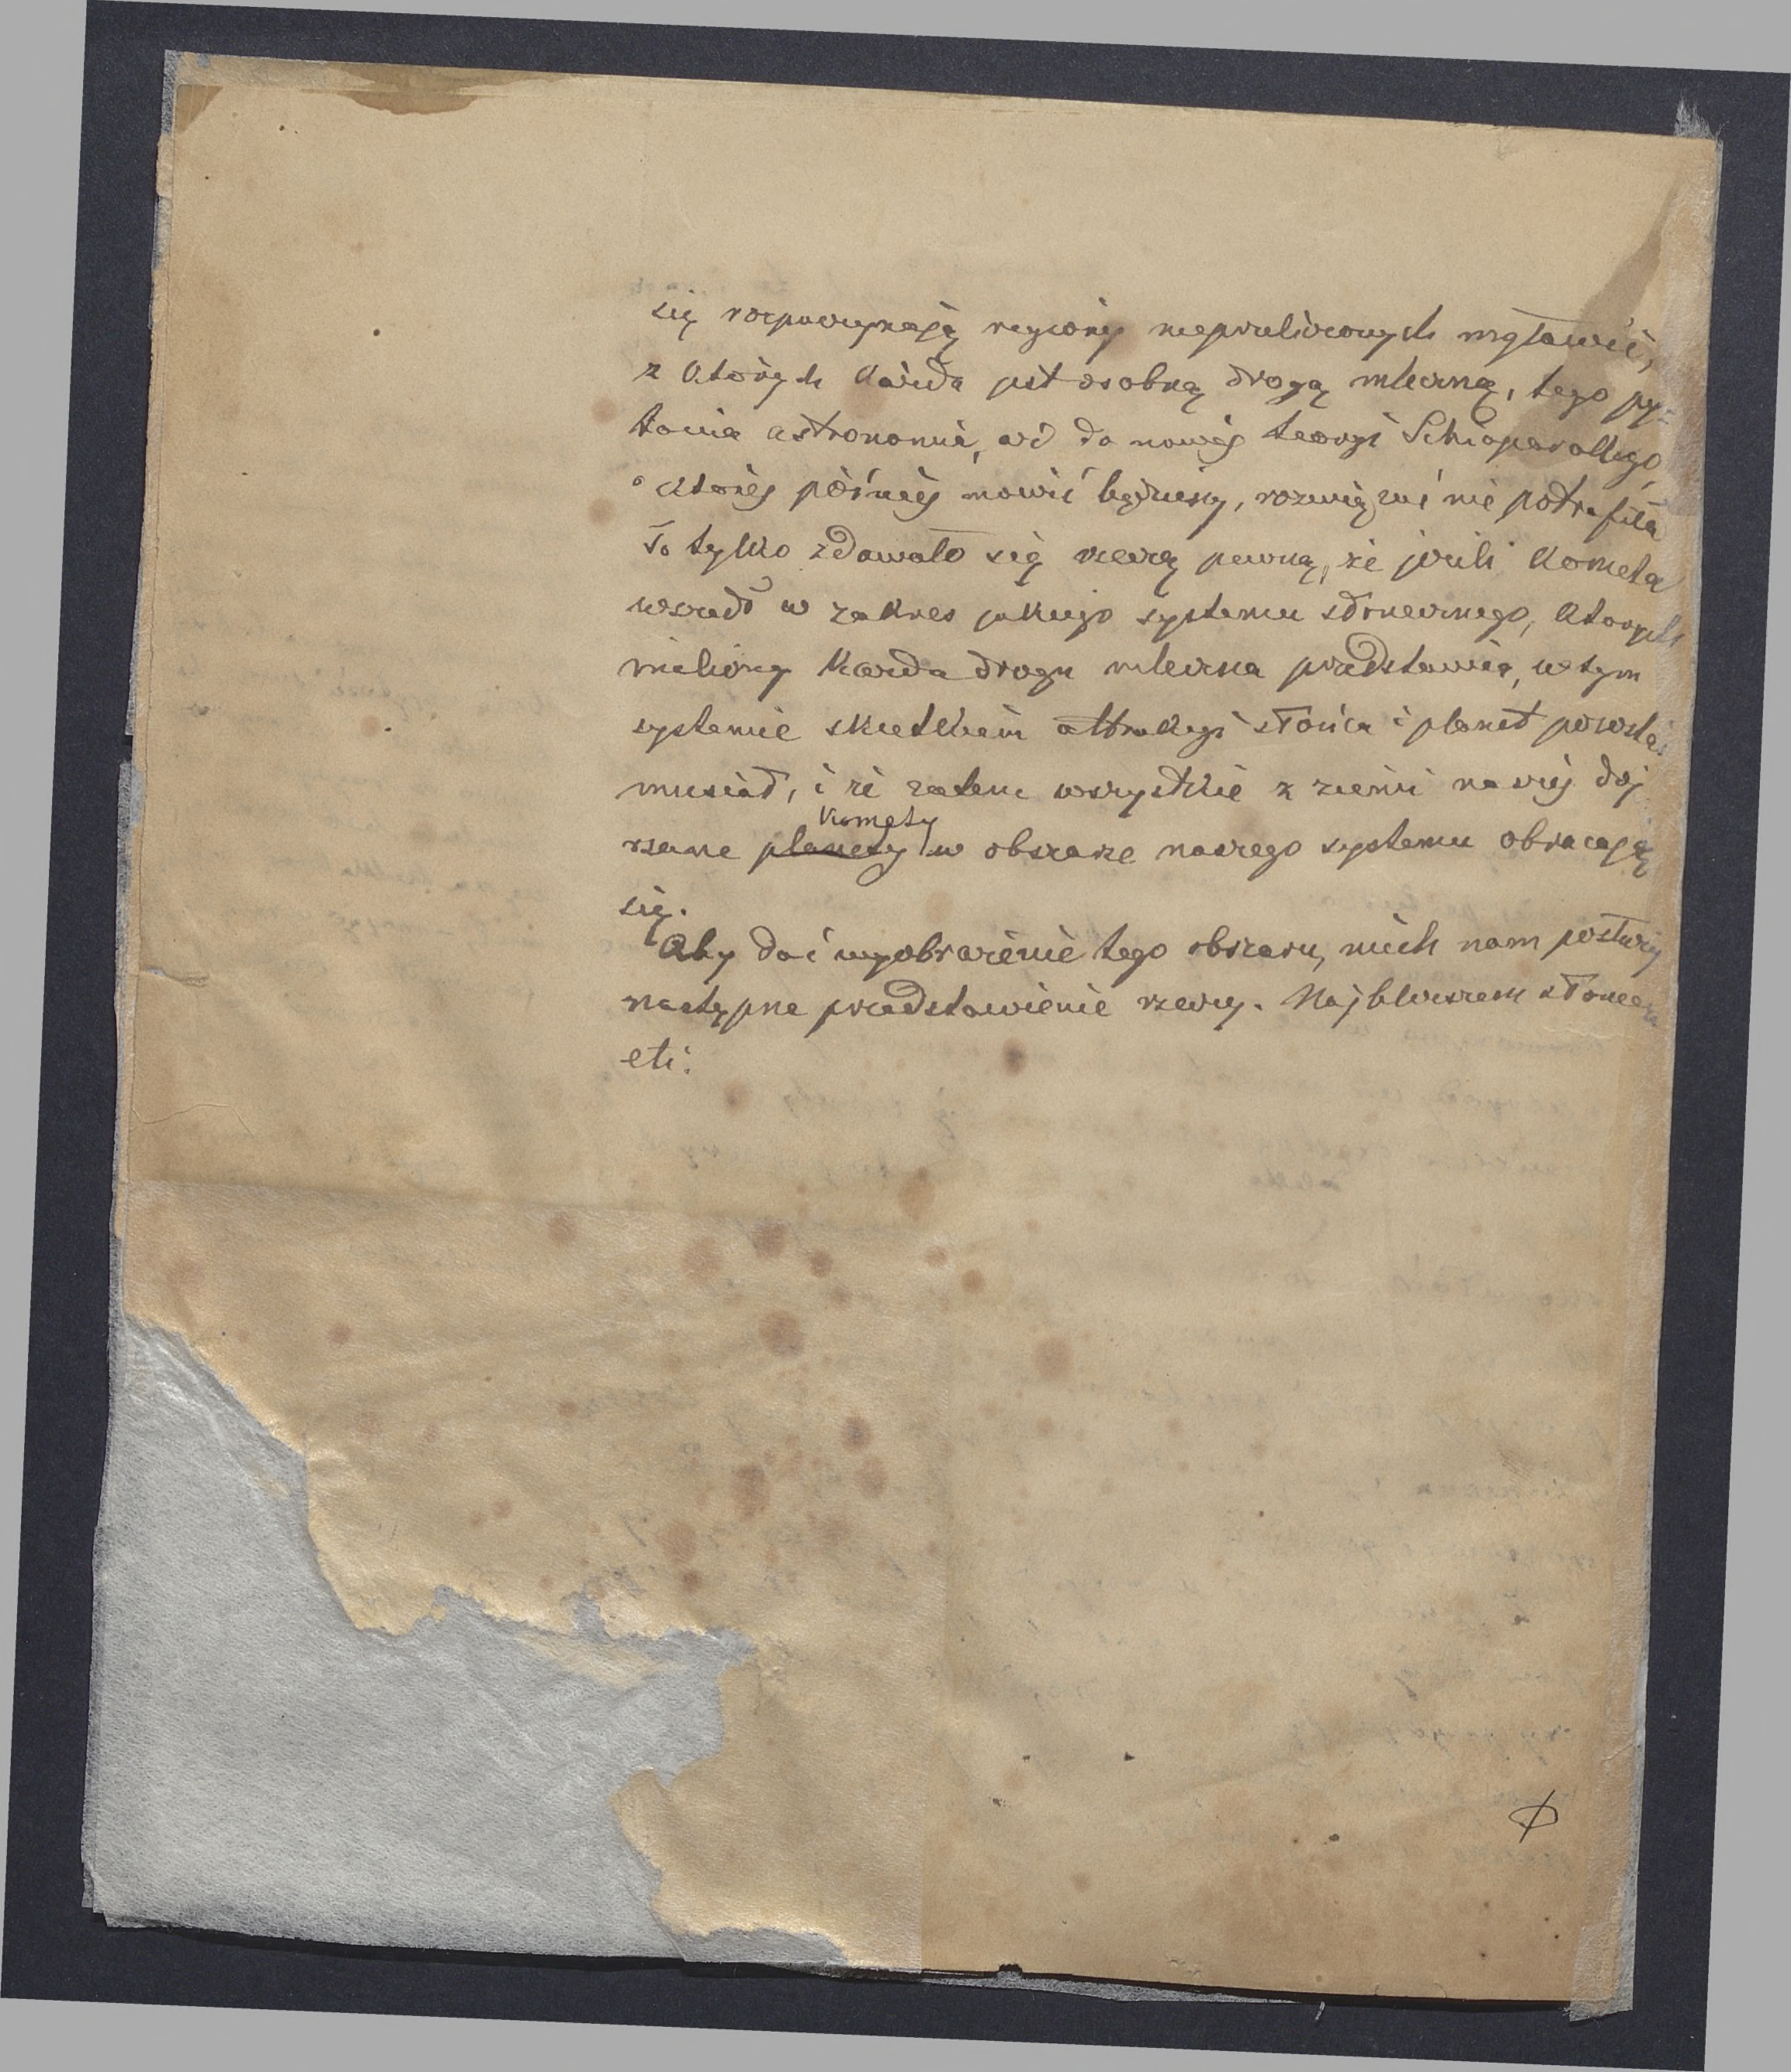 się rozpoczynają regiony nieprzeliczonych mgławic,
z których każda jest osobną drogą mleczną, tego py-
tania astronomia, aż do nowej teoryi Schiaparellego,
o której później mówić będziemy, rozwiązać nie potrafiła
To tylko zdawało się rzeczą pewną, że jeżeli kometa
wszedł w zakres jakiego systemu słonecznego, których
miliony każda droga mleczna przedstawia, w tym
systemie skutkiem attrakcyi słońca i planet pozostać
musiał, i że zatem wszystkie z ziemi naszej doj
rzane planety komety w obszarze naszego systemu obracają
się.
Aby dać wyobrażenie tego obszaru, niech nam posłuży
następne przedstawienie rzeczy. Najbliższem słońca
etc.